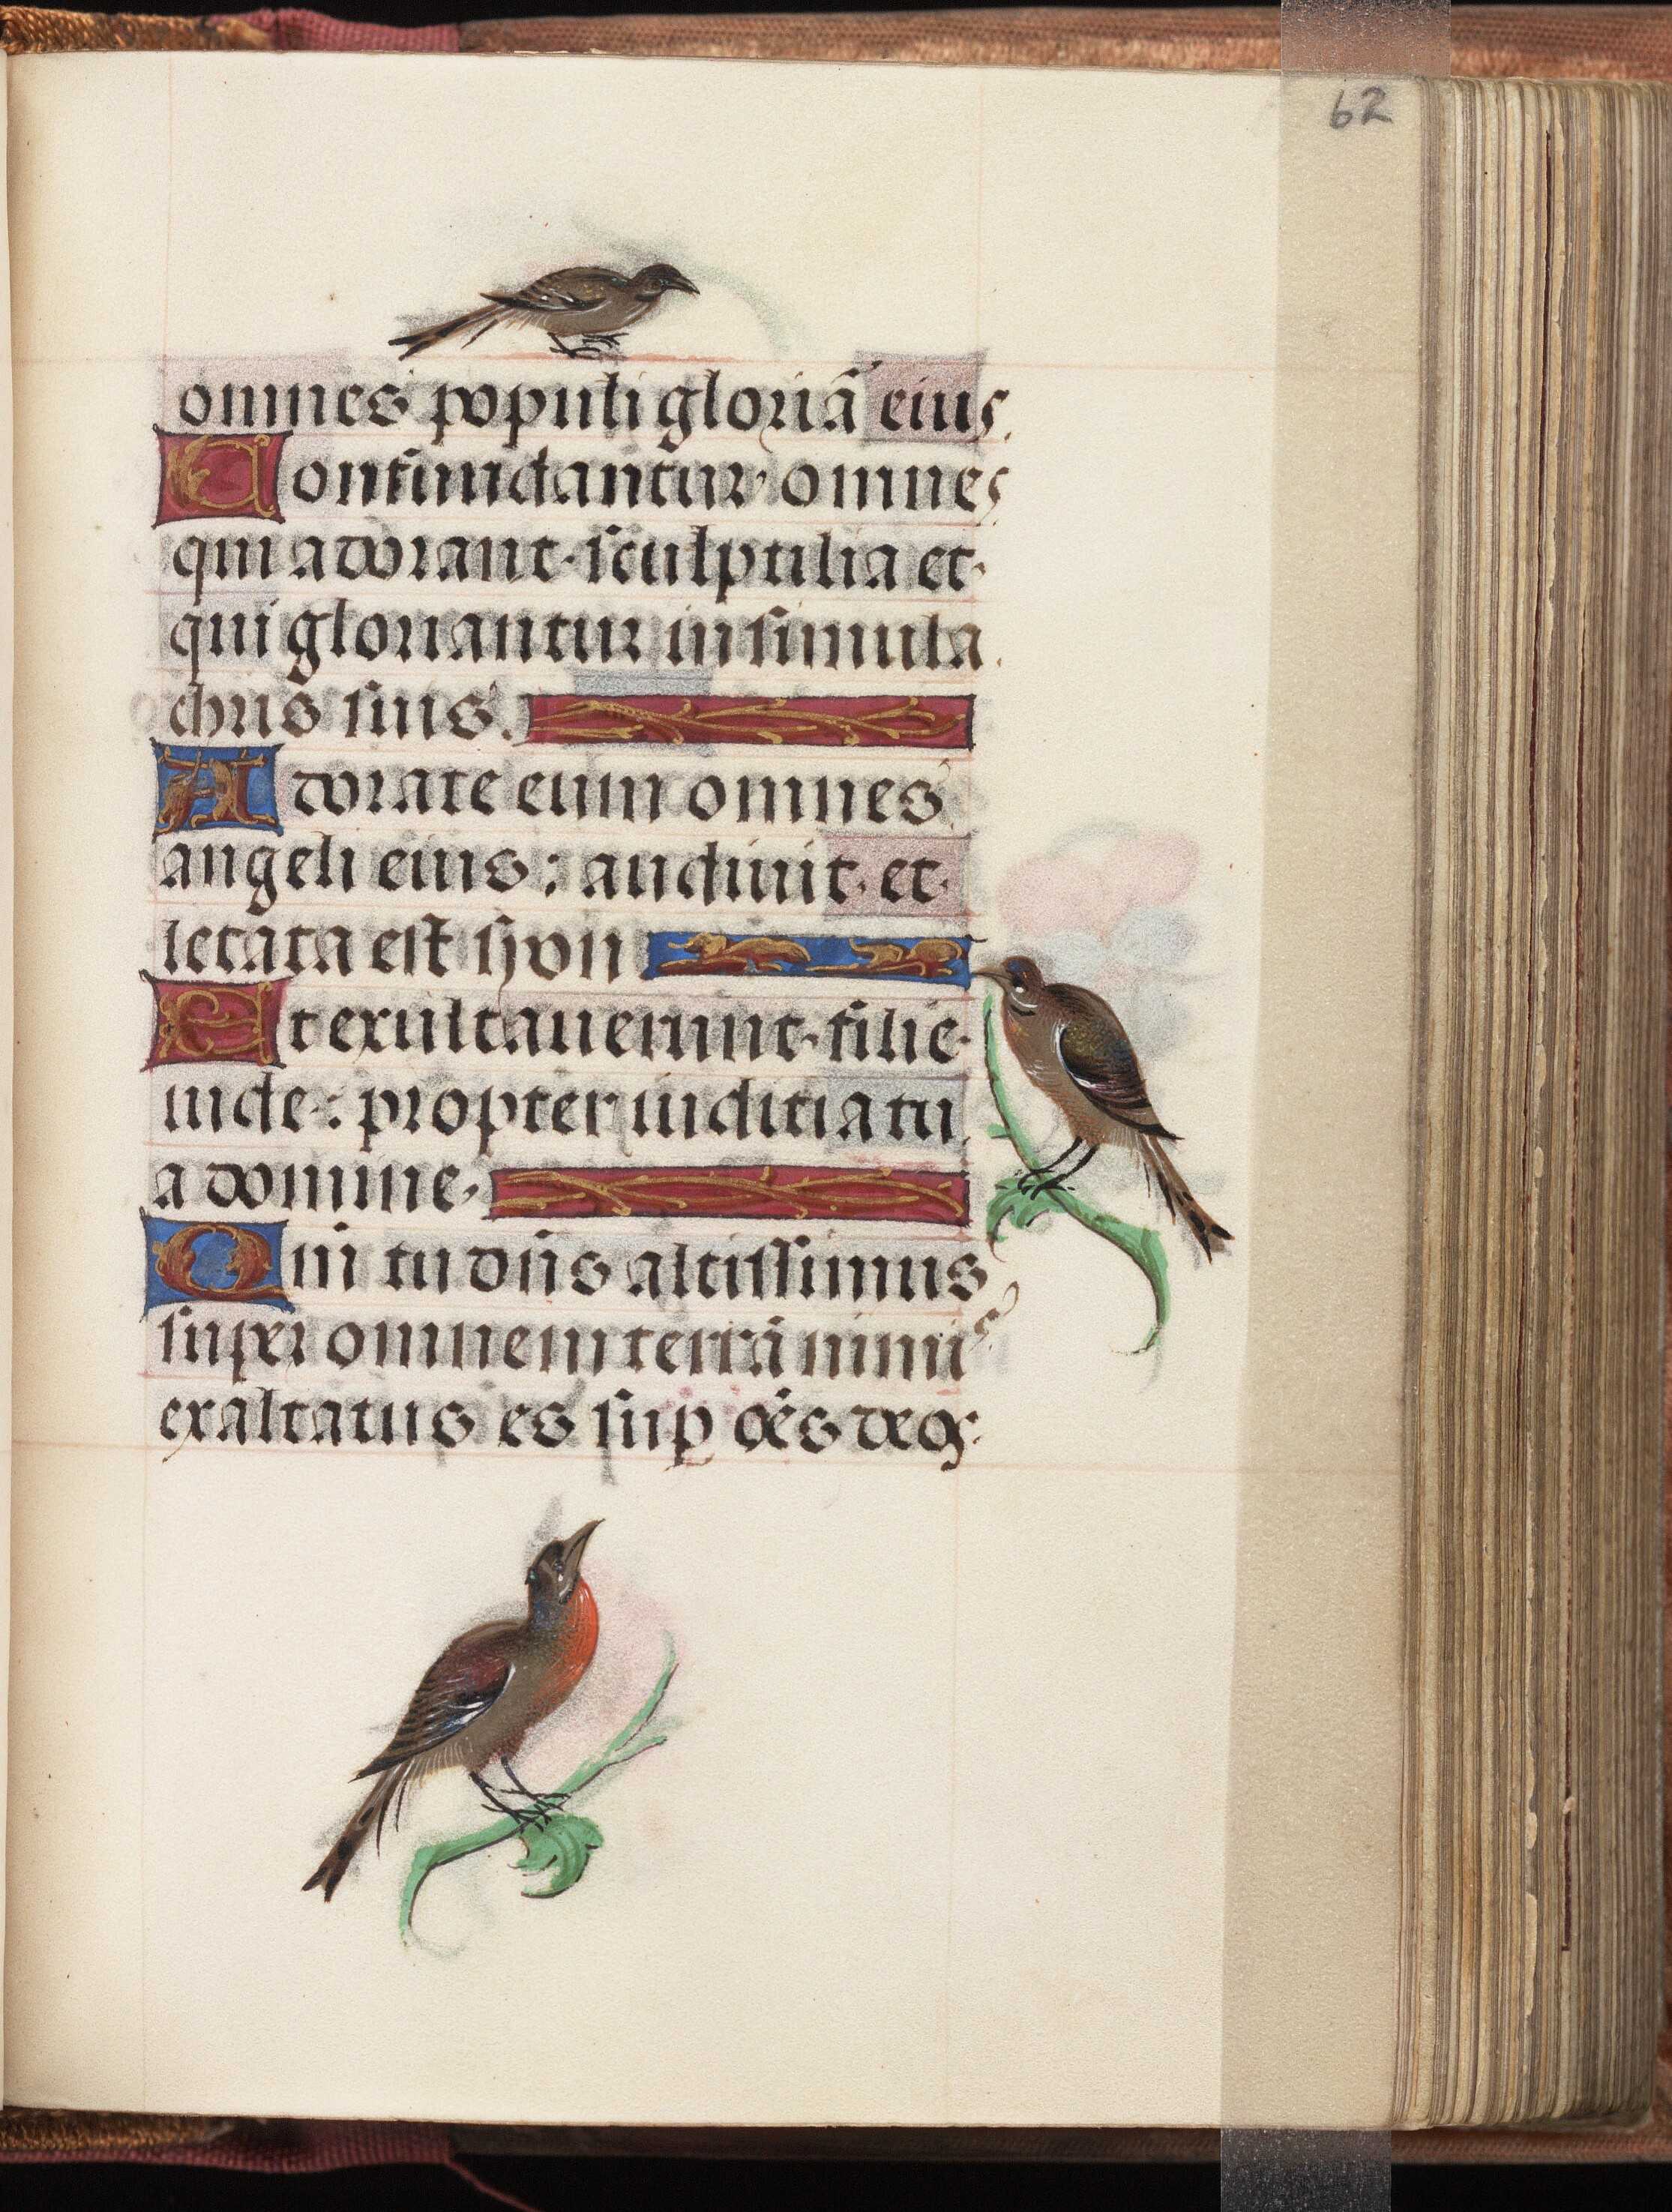 62
omnes populi gloriā eius.
Confundantur omnes
qui adorant sculptilia et
qui gloriantur in simula
chris suis.
Adorate eum omnes
angeli eius: audiuit et
letata est syon
Et exultauerunt filie
iude: propter iuditia tu
a domine.
Qm̄ tu dn̄s altissimus
super omnem terrā nimis
exaltatus es sup oēs deos